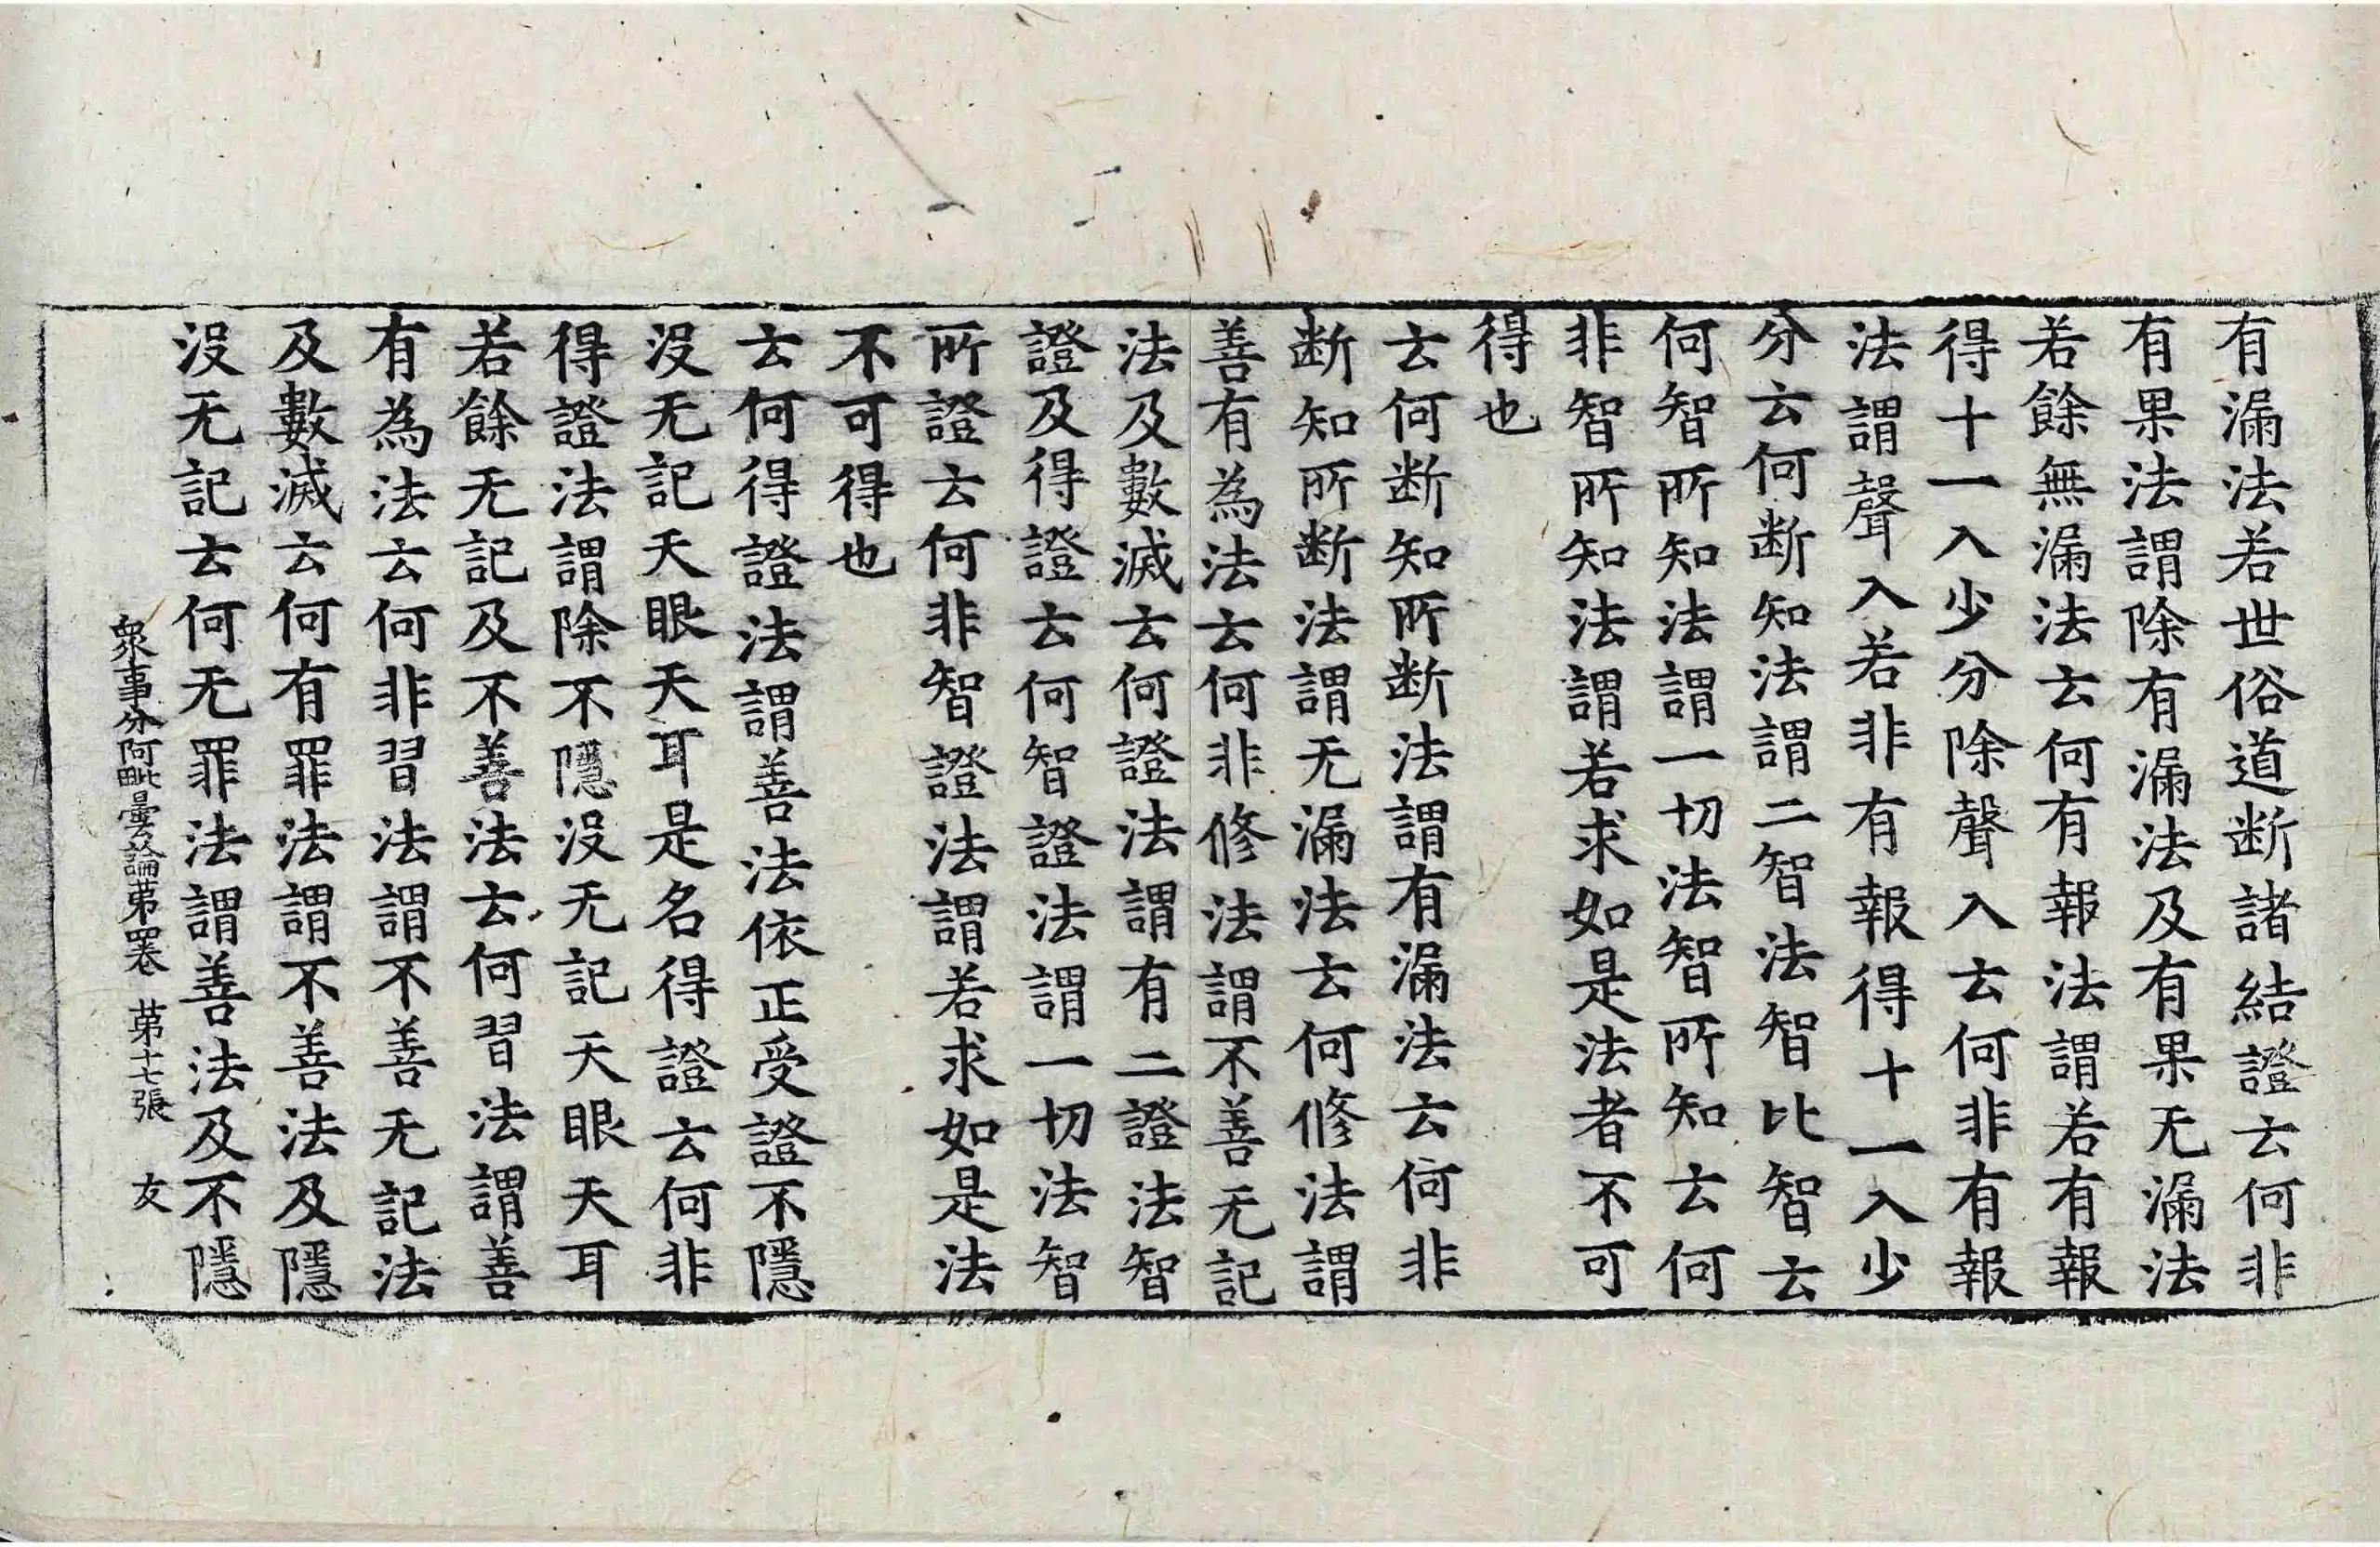 有漏法若世俗道断諸結證云何非
有果法謂除有漏法及有果无漏法
若餘無漏法云何有報法謂若有報
得十一入少分除聲入云何非有報
法謂聲入若非有報得十一入少
分云何断知法謂二智法智比智云
何智所知法謂一切法智所知云何
非智所知法謂若求如是法者不可
得也
云何断知所断法謂有漏法云何非
断知所断法謂无漏法云何修法謂
善有為法云何非修法謂不善无記
法及數滅云何證法謂有二證法智
證及得證云何智證法謂一切法智
所證云何非智證法謂若求如是法
不可得也
云何得證法謂善法依正受證不隱
没无記天眼天耳是名得證云何非
得證法謂除不隱没无記天眼天耳
若餘无記及不善法云何習法謂善
有為法云何非習法謂不善无記法
及數滅云何有罪法謂不善法及隱
没无記云何无罪法謂善法及不隱
衆事分阿毗曇論苐四卷 苐十七張 友